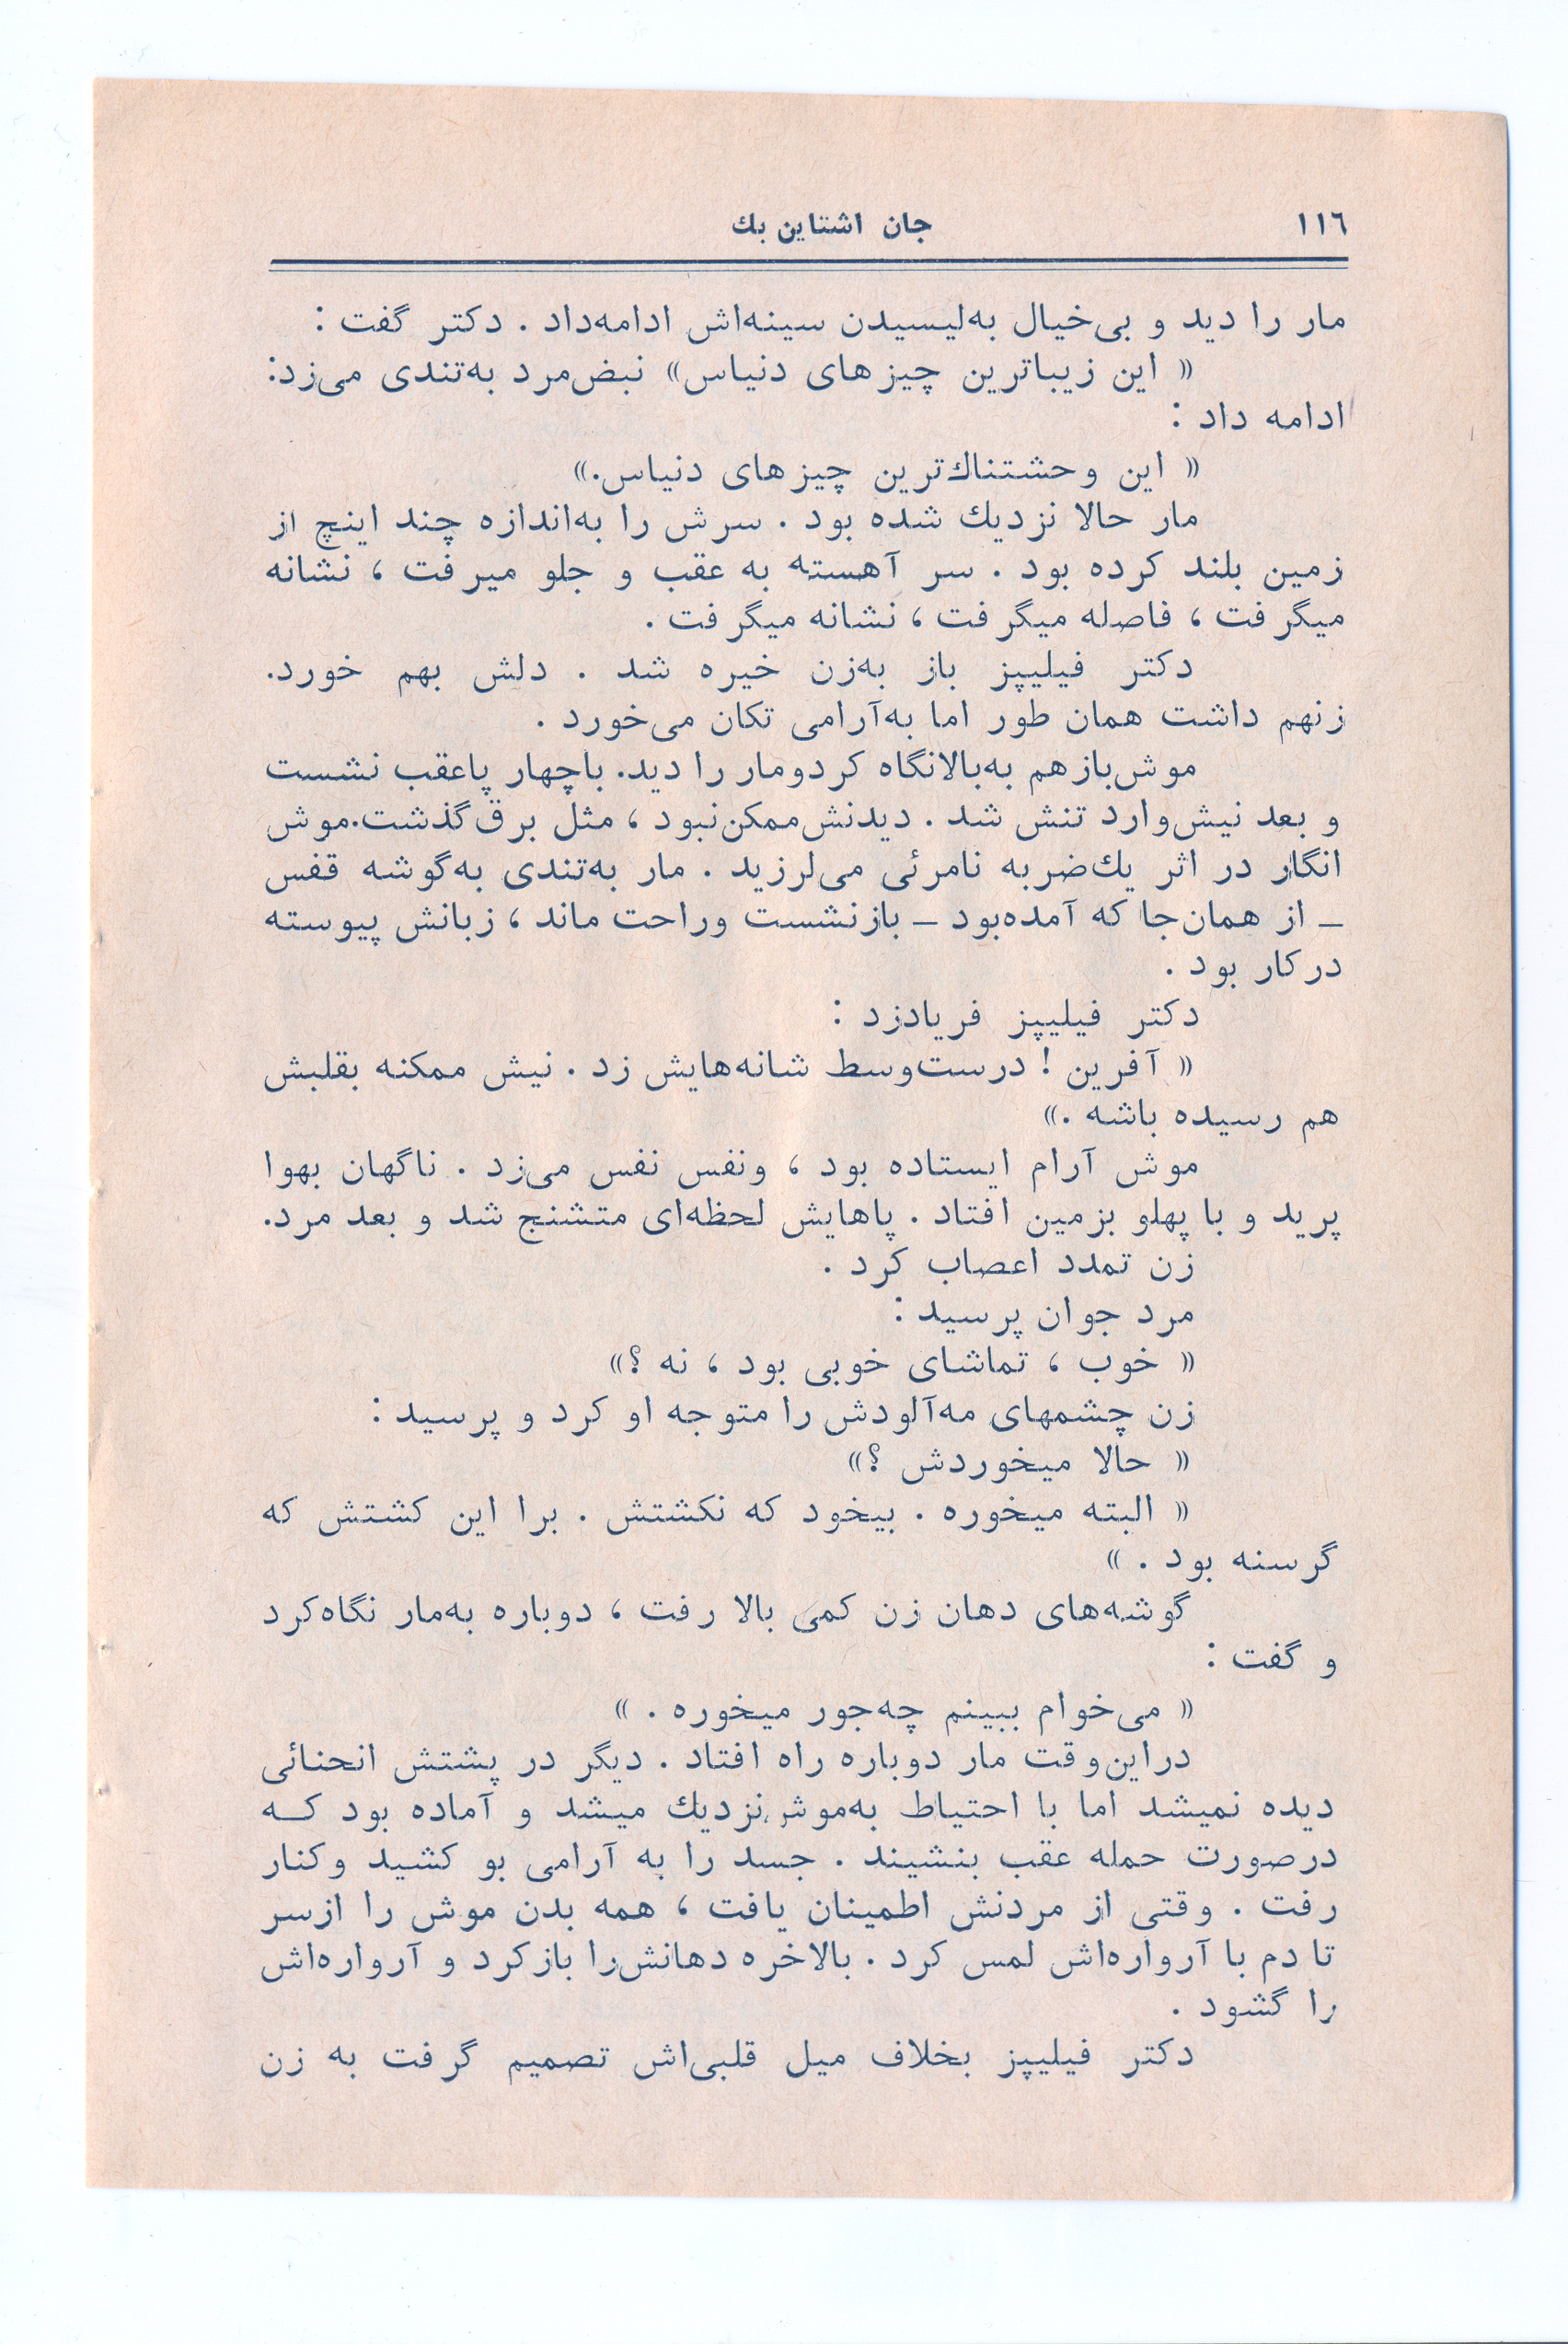 ۱۱٦
جان اشتاین بك
مار را دید و بی‌خیال به‌لیسیدن سینه‌اش ادامه‌داد . دکتر گفت :
« این زیباترین چیزهای دنیاس» نبض‌مرد به‌تندی می‌زد:
ادامه داد :
« این وحشتناك‌ترین چیزهای دنیاس.»
مار حالا نزدیك شده بود . سرش را به‌اندازه چند اینچ از
زمین بلند کرده بود . سر آهسته به عقب و جلو میرفت ، نشانه
میگرفت ، فاصله میگرفت ، نشانه میگرفت .
دکتر فیلیپز باز به‌زن خیره شد . دلش بهم خورد.
زنهم داشت همان طور اما به‌آرامی تکان می‌خورد .
موش‌بازهم به‌بالانگاه کردومار را دید. باچهار پاعقب نشست
و بعد نیش‌وارد تنش شد . دیدنش‌ممکن‌نبود ، مثل برق‌گذشت.موش
انگار در اثر یك‌ضربه نامرئی می‌لرزید . مار به‌تندی به‌گوشه قفس
ـ از همان‌جا که آمده‌بود ـ بازنشست وراحت ماند ، زبانش پیوسته
درکار بود .
دکتر فیلیپز فریادزد :
« آفرین ! درست‌وسط شانه‌هایش زد . نیش ممکنه بقلبش
هم رسیده باشه .»
موش آرام ایستاده بود ، ونفس نفس می‌زد . ناگهان بهوا
پرید و با پهلو بزمین افتاد . پاهایش لحظه‌ای متشنج شد و بعد مرد.
زن تمدد اعصاب کرد .
مرد جوان پرسید :
« خوب ، تماشای خوبی بود ، نه ؟»
زن چشمهای مه‌آلودش را متوجه او کرد و پرسید :
« حالا میخوردش ؟»
« البته میخوره . بیخود که نکشتش . برا این کشتش که
گرسنه بود . »
گوشه‌های دهان زن کمی بالا رفت ، دوباره به‌مار نگاه‌کرد
و گفت :
« می‌خوام ببینم چه‌جور میخوره . »
دراین‌وقت مار دوباره راه افتاد . دیگر در پشتش انحنائی
دیده نمیشد اما با احتیاط به‌موش‌نزدیك میشد و آماده بود کـه
درصورت حمله عقب بنشیند . جسد را به آرامی بو کشید وکنار
رفت . وقتی از مردنش اطمینان یافت ، همه بدن موش را ازسر
تا دم با آرواره‌اش لمس کرد . بالاخره دهانش‌را بازکرد و آرواره‌اش
را گشود .
دکتر فیلیپز بخلاف میل قلبی‌اش تصمیم گرفت به زن